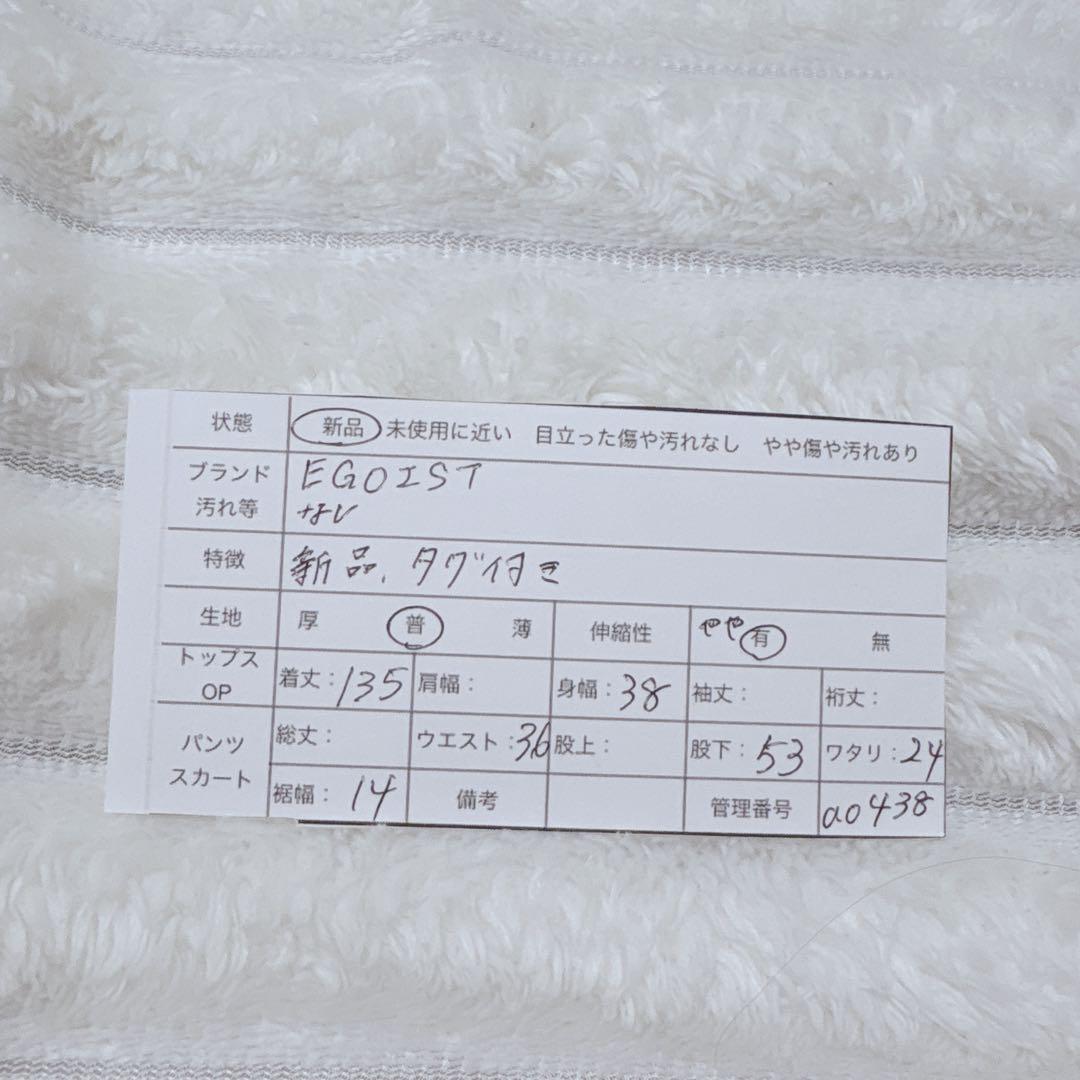 状態 新品 未使用に近い 目立った傷や汚れなし やや傷や汚れあり
ブランド EGOIST
汚れ等 なし
特徴 新品、タグ付き
生地 厚 普 薄 伸縮性 やや有 無
トップス
OP 着丈:135 肩幅: 身幅:38 袖丈: 裄丈:
パンツ
スカート 総丈: ウエスト:36 股上: 股下:53 ワタリ:24
裾幅:14 備考 管理番号 a0438